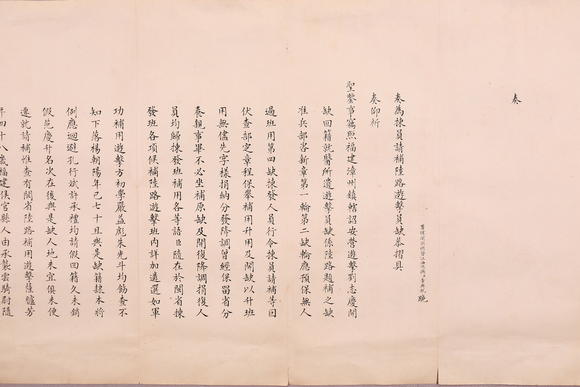 奏
奏為揀員請補陸路遊擊員缺恭摺具
奏仰祈
聖鑒事竊照福建漳州鎮轄詔安營遊擊劉志慶開
缺回籍就醫所遺遊擊員缺係陸路題補之缺
准兵部咨新章第一輪第二缺輪應預保無人
過班用第四缺揀發人員行令揀員請補等因
伏查部定章程保舉補用升用及開缺以升班
用無儘先字樣捐納分發降調曾經保留省分
奏報事畢不必坐補原缺及開復降調捐復人
員均歸揀發班補用各等語臣隨在於閩省揀
發班各項候補陸路遊擊班內詳加遴選如軍
功補用遊擊方初學嚴益彪朱光斗均飭查不
知下落楊朝陽年已七十且與是缺籍隸本府
例應迴避孔行斌許承禮均請假回籍久未銷
假范慶升名次在後與是缺人地未宜俱未便
遷就請補惟查有閩省陸路補用遊擊薩臚芳
年四十八歲福建侯官縣人由承襲雲騎尉隨